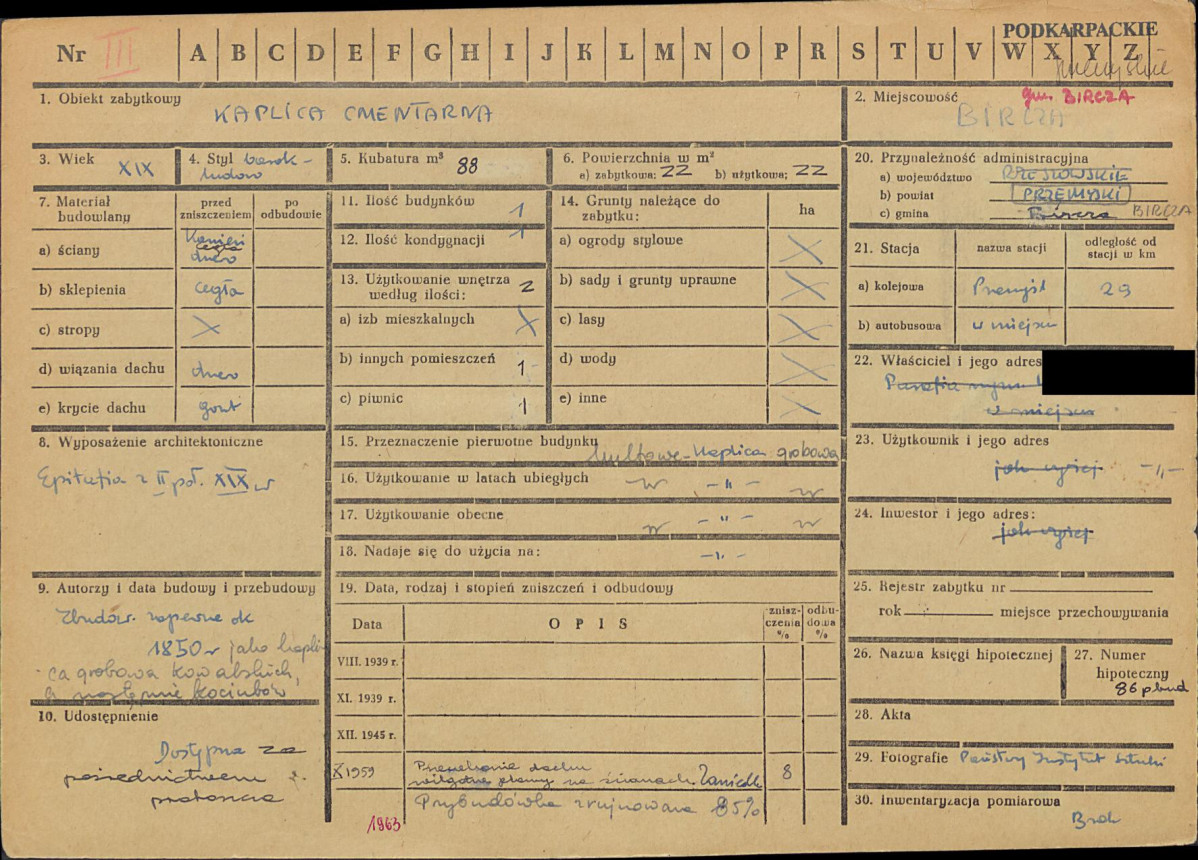 PODKARPACKIE
Nr III A B C D E F G H I J K L M N O P R S T U V W X Y Z
1. Obiekt zabytkowy
KAPLICA CMENTARNA
2. Miejscowość gm. BIRCZA
BIRCZA
3. Wiek XIX
4. Styl barok-
ludow
5. Kubatura m³ 88
6. Powierzchnia w m²
a) zabytkowa: 22 b) użytkowa; 22
7. Materiał budowlany
przed zniszczeniem
po odbudowie
a) ściany
kamień
cegła
drewo
b) sklepienia cegła
c) stropy X
d) wiązania dachu drewo
e) krycie dachu gont
8. Wyposażenie architektoniczne
Epitafia z II poł. XIX w
9. Autorzy i data budowy i przebudowy
Zbudow. zapewne ok
1850 r jako kapli-
ca grobowa Kowalskich,
a następnie Kociubów
10. Udostępnienie
Dostępna za
pośrednictwem
proboszcza
11. Ilość budynków 1
12. Ilość kondygnacji 1
13. Użytkowanie wnętrza według ilości: 2
a) izb mieszkalnych X
b) innych pomieszczeń 1
c) piwnic 1
14. Grunty należące do zabytku:
ha
a) ogrody stylowe X
b) sady i grunty uprawne X
c) lasy X
d) wody X
e) inne X
15. Przeznaczenie pierwotne budynku
kultowe - kaplica grobowa
16. Użytkowanie w latach ubiegłych w - " - w
17. Użytkowanie obecne w - " - w
18. Nadaje się do użycia na: - " -
19. Data, rodzaj i stopień zniszczeń i odbudowy
Data
OPIS
zniszczenia %
odbudowa %
VIII. 1939 r.
XI. 1939 r.
XII. 1945 r.
X 1959
Przeciekanie dachu
wilgotne plamy na ścianach. Zaniedb
8
Przybudówka zrujnowana 85%
1963
20. Przynależność administracyjna
a) województwo RZESZOWSKIE
b) powiat PRZEMYSKI
c) gmina Bircza BIRCZA
21. Stacja
nazwa stacji
odległość od stacji w km
a) kolejowa Przemyśl 29
b) autobusowa w miejscu
22. Właściciel i jego adres
Parafia rzym.
w miejscu
23. Użytkownik i jego adres
jak wyżej - " -
24. Inwestor i jego adres:
jak wyżej
25. Rejestr zabytku nr
rok miejsce przechowywania
26. Nazwa księgi hipotecznej
27. Numer hipoteczny
86 pbud
28. Akta
29. Fotografie Państwowy Instytut Sztuki
30. Inwentaryzacja pomiarowa
Brak